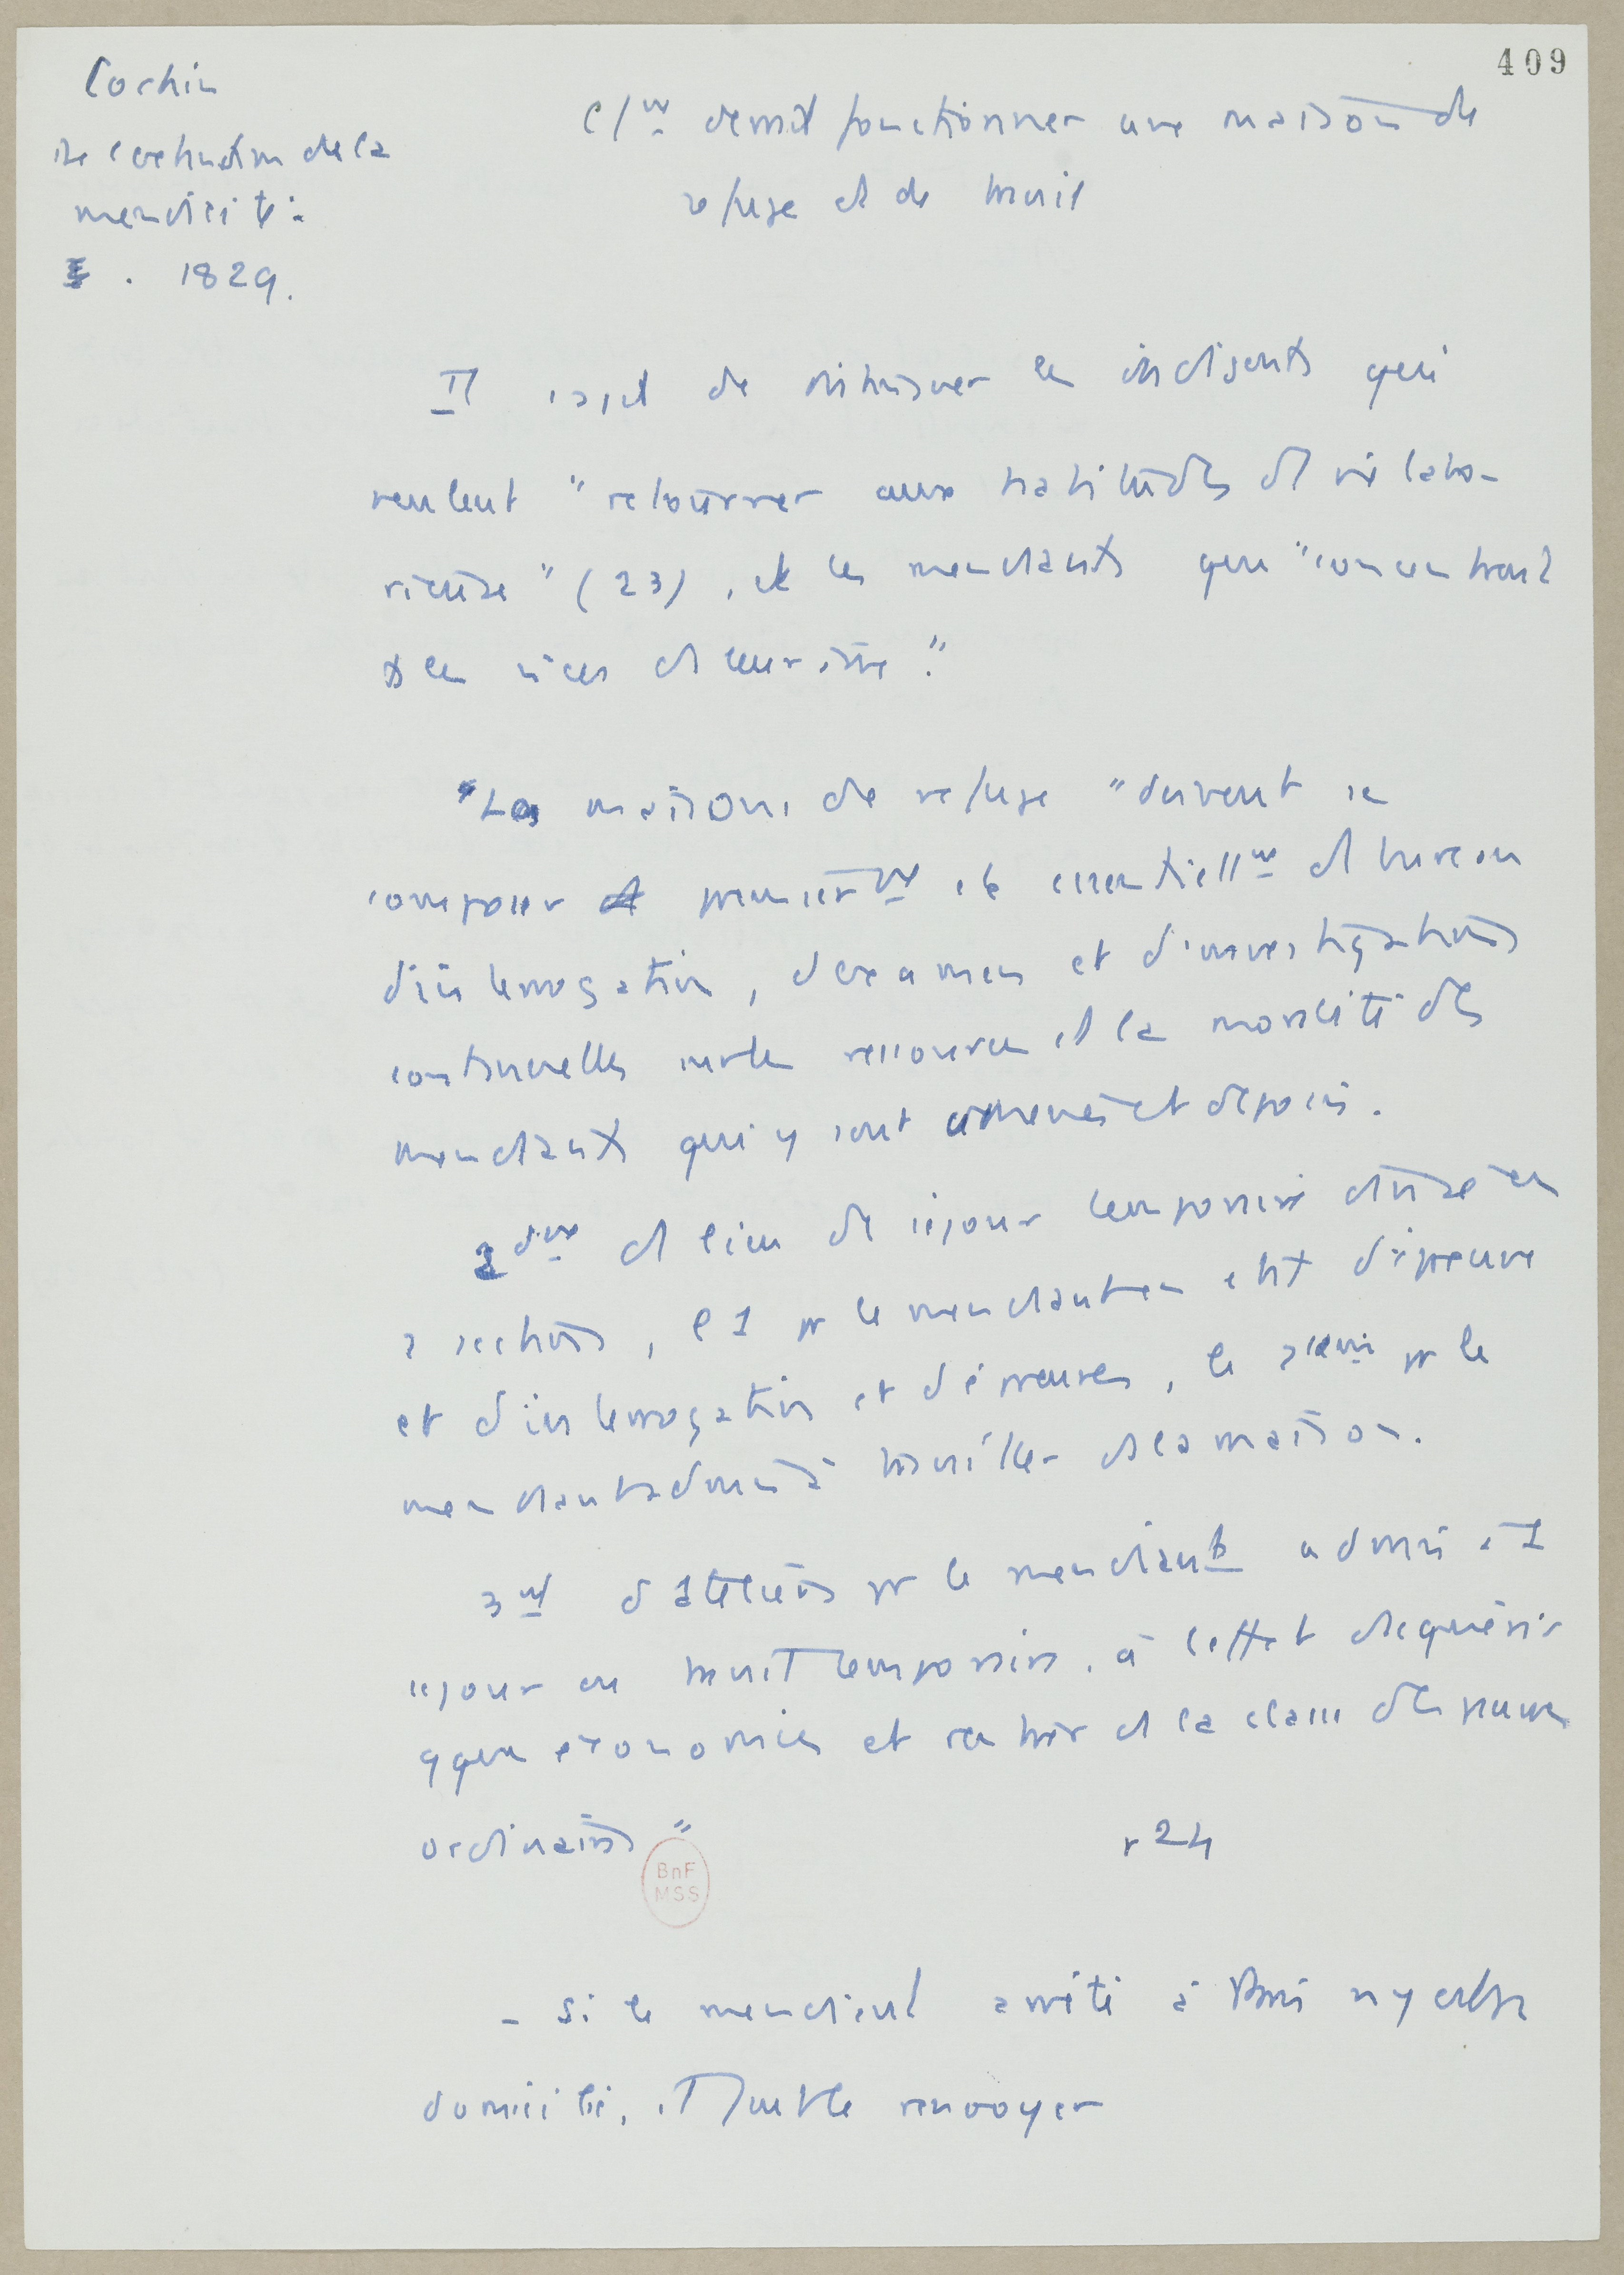 409
Cochin
De l'extinction de la
mendicité.
. 1829.
C/m devrait fonctionner une maison de
refuge et de travail
Il s'agit de distinguer les indigents qui
veulent "retourner aux habitudes de vie labo-
rieuse" (23), et les mendiants que "concentrent
les vices de leur être".
"Les maisons de refuge "doivent se
composer premièrmt et essentiellmt de bureau
d'interrogation, d'examen et d'investigations
continuelles sur les ressources et la moralité des
mendiants qui y sont amenés et déposés.
2dmt de lieu de séjour temporaire divisé en
2 sections, l'1 pr les mendiants en état d'épreuve
et d'interrogation et d'épreuves, le pr les
mendiants admis à travailler ds la maison.
3mt d'ateliers pr les mendiants admis à 1
séjour ou travail temporaires, à l'effet d'acquérir
qques économies et rentrer ds la classe des pauvres
ordinaires"
p 24
- Si le mendiant arrêté à Paris n'y est pas
domicilié, il faut le renvoyer
BnF
MSS